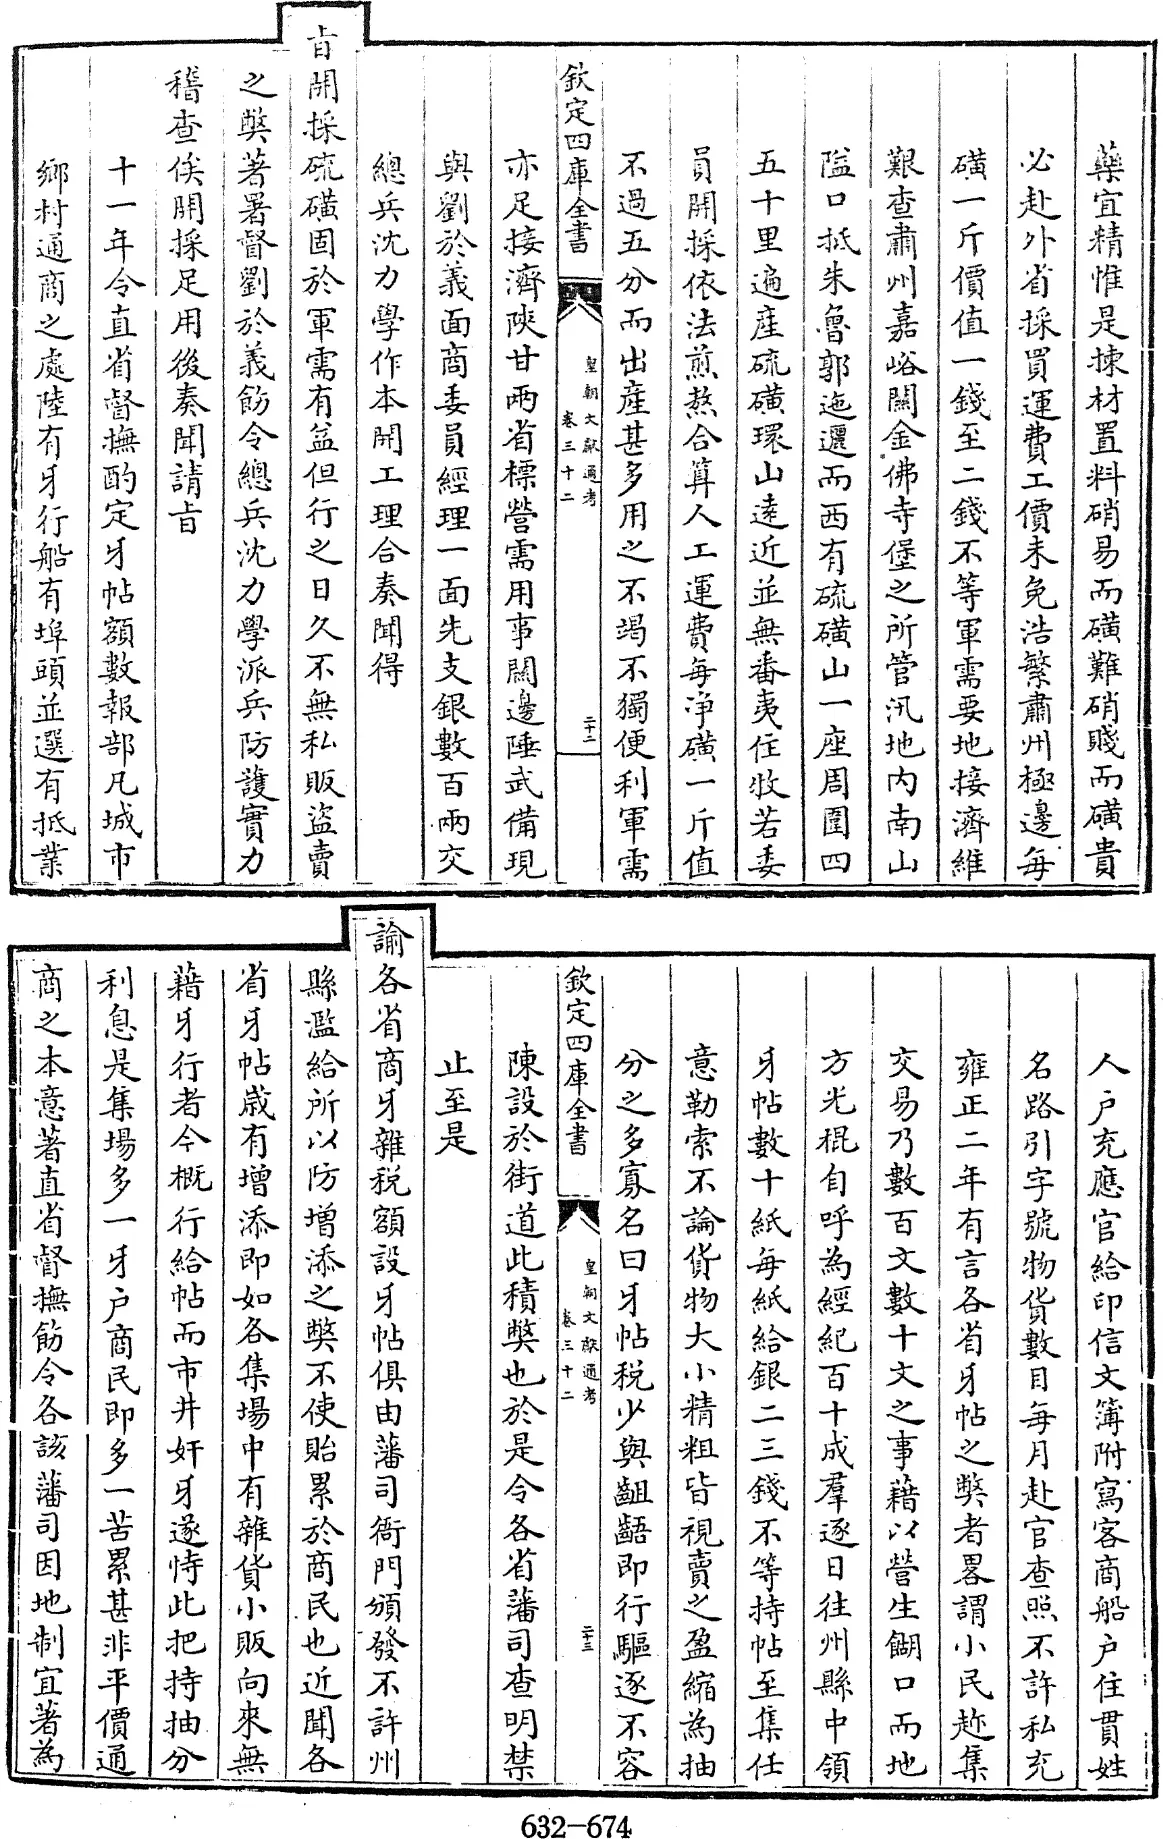 藥宜精惟是揀材置料硝易而磺難硝賤而磺貴
必赴外省採買運費工價未免浩繁肅州極邊每
磺一斤價值一錢至二錢不等軍需要地接濟維
艱查肅州嘉峪關金佛寺堡之所管汛地内南山
隘口抵朱魯郭迤邐而西有硫磺山一座周圍四
五十里遍産硫磺環山逺近並無番夷住牧若委
員開採依法煎熬合算人工運費每淨磺一斤值
不過五分而出産甚多用之不竭不獨便利軍需
欽定四庫全書
皇朝文獻通考
卷三十二
二十二
亦足接濟陜甘兩省標營需用事關邊陲武備現
與劉於義面商委員經理一面先支銀數百兩交
總兵沈力學作本開工理合奏聞得
㫖開採硫磺固於軍需有益但行之日久不無私販盜賣
之弊著署督劉於義飭令總兵沈力學派兵防護實力
稽查俟開採足用後奏聞請㫖
十一年令直省督撫酌定牙帖額數報部凡城市
鄉村通商之處陸有牙行船有埠頭並選有抵業
人户充應官給印信文簿附寫客商船户住貫姓
名路引字號物貨數目每月赴官查照不許私充
雍正二年有言各省牙帖之弊者畧謂小民趂集
交易乃數百文數十文之事藉以營生餬口而地
方光棍自呼為經紀百十成羣逐日往州縣中領
牙帖數十紙每紙給銀二三錢不等持帖至集任
意勒索不論貨物大小精粗皆視賣之盈縮為抽
分之多寡名曰牙帖税少與齟齬即行驅逐不容
欽定四庫全書
皇朝文獻通考
卷三十二
二十三
陳設於街道此積弊也於是令各省藩司查明禁
止至是
諭各省商牙雜税額設牙帖俱由藩司衙門頒發不許州
縣濫給所以防增添之弊不使貽累於商民也近聞各
省牙帖歳有增添即如各集場中有雜貨小販向來無
藉牙行者今概行給帖而市井奸牙遂恃此把持抽分
利息是集場多一牙户商民即多一苦累甚非平價通
商之本意著直省督撫飭令各該藩司因地制宜著為
632-674